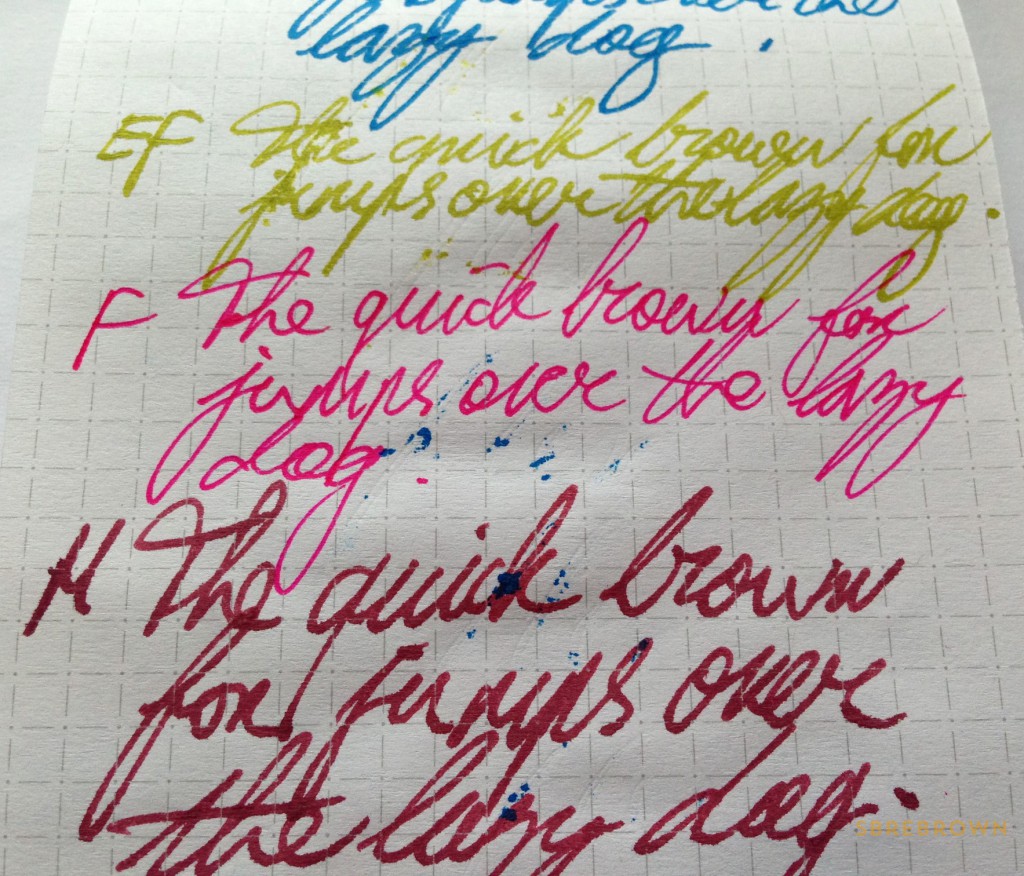 jumps over the
lazy dog .
EF The quick brown fox
jumps over the lazy dog.
F The quick brown fox
jumps over the lazy
dog.
M The quick brown
fox jumps over
the lazy dog.
SBREBROWN